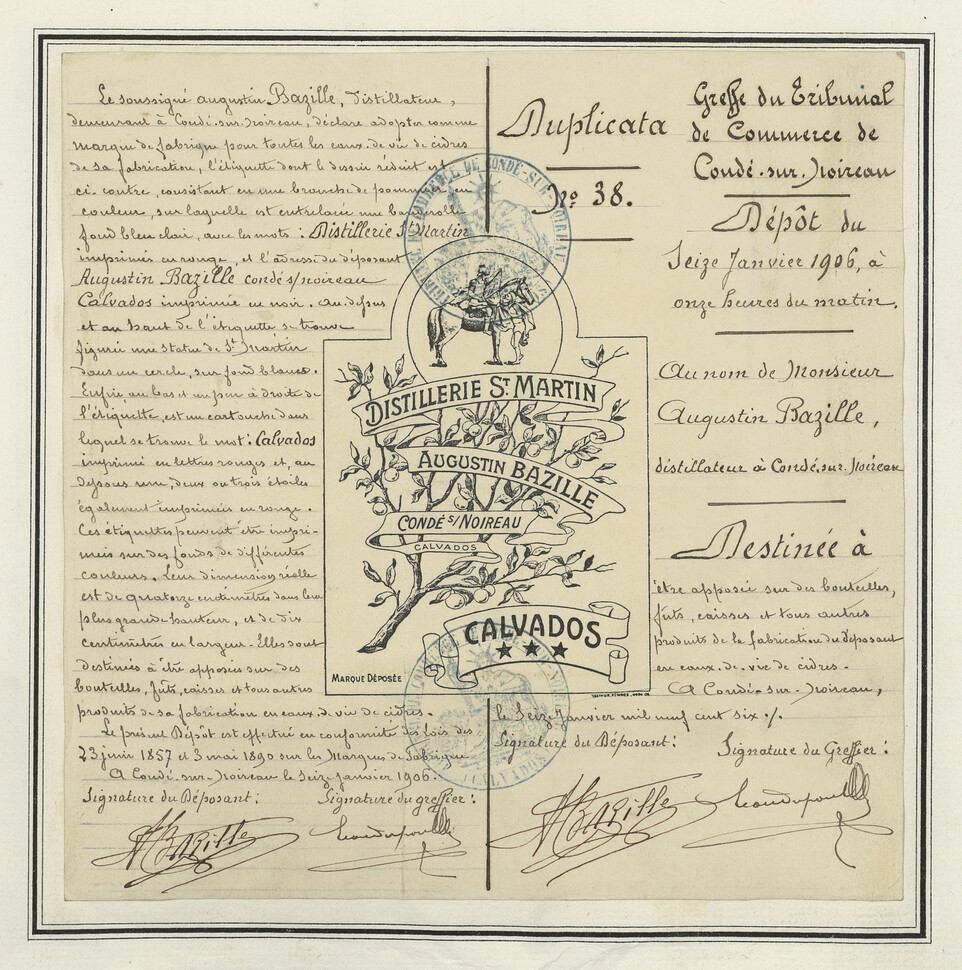 Le soussigné augustin Bazille, Distillateur,
demeurant à Condé-sur-Noireau, déclare adopter comme
marque de fabrique pour toutes les eaux-de-vie de cidres
de sa fabrication, l'étiquette dont le dessin réduit est
ci-contre, consistant en une branche de pommier en
couleur, sur laquelle est entrelacée une banderolle
fond bleu clair, avec les mots: Distillerie St Martin
imprimés en rouge, et l'adresse du déposant
Augustin Bazille condé s/noireau
Calvados imprimée en noir. Au-dessus
et au haut de l'étiquette se trouve
figurée une statue de St Martin
dans un cercle, sur fond blanc.
Enfin au bas et un peu à droite de
l'étiquette, est un cartouche dans
lequel se trouve le mot: Calvados
imprimé en lettres rouges et, au
dessous une, deux ou trois étoiles
également imprimées en rouge.
Ces étiquettes peuvent être impri-
mées sur des fonds de différentes
couleurs. Leur dimension réelle
est de quatorze centimètres dans leur
plus grande hauteur, et de dix
centimètres en largeur. Elles sont
destinées à être apposées sur des
bouteilles, fûts, caisses et tous autres
produits de sa fabrication en eaux-de-vie de cidres.
Le présent Dépôt est effectué en conformité des lois des
23 juin 1857 et 3 mai 1890 sur les Marques de fabrique
A Condé-sur-Noireau le Seize Janvier 1906.
Signature du Déposant: Signature du greffier:
ABazille
DISTILLERIE ST MARTIN
AUGUSTIN BAZILLE
CONDÉ S/NOIREAU
CALVADOS
CALVADOS
MARQUE DÉPOSÉE
Duplicata
No 38.
Greffe du Tribunal
de Commerce de
Condé-sur-Noireau
Dépôt du
Seize Janvier 1906, à
onze heures du matin.
Au nom de Monsieur
Augustin Bazille,
distillateur à Condé-sur-Noireau
Destinée à
être apposée sur des bouteilles,
fûts, caisses et tous autres
produits de la fabrication du déposant
en eaux-de-vie de cidres.
A Condé-sur-Noireau,
le Seize Janvier mil neuf cent six ./.
Signature du Déposant: Signature du Greffier:
ABazille